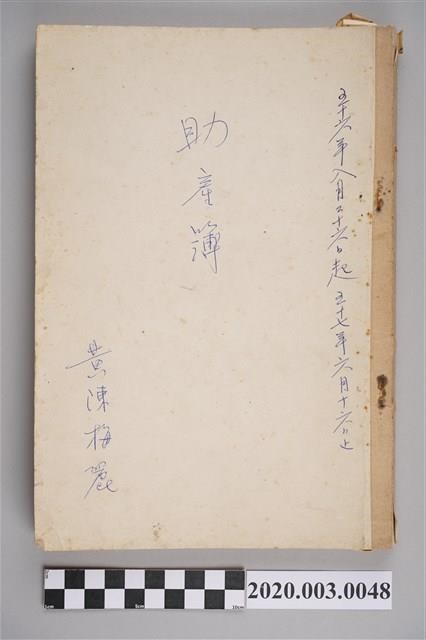 五十六年八月二十六日起 五十七年六月十六日止
助產簿
黃陳梅麗
1cm 5cm 10cm
2020.003.0048